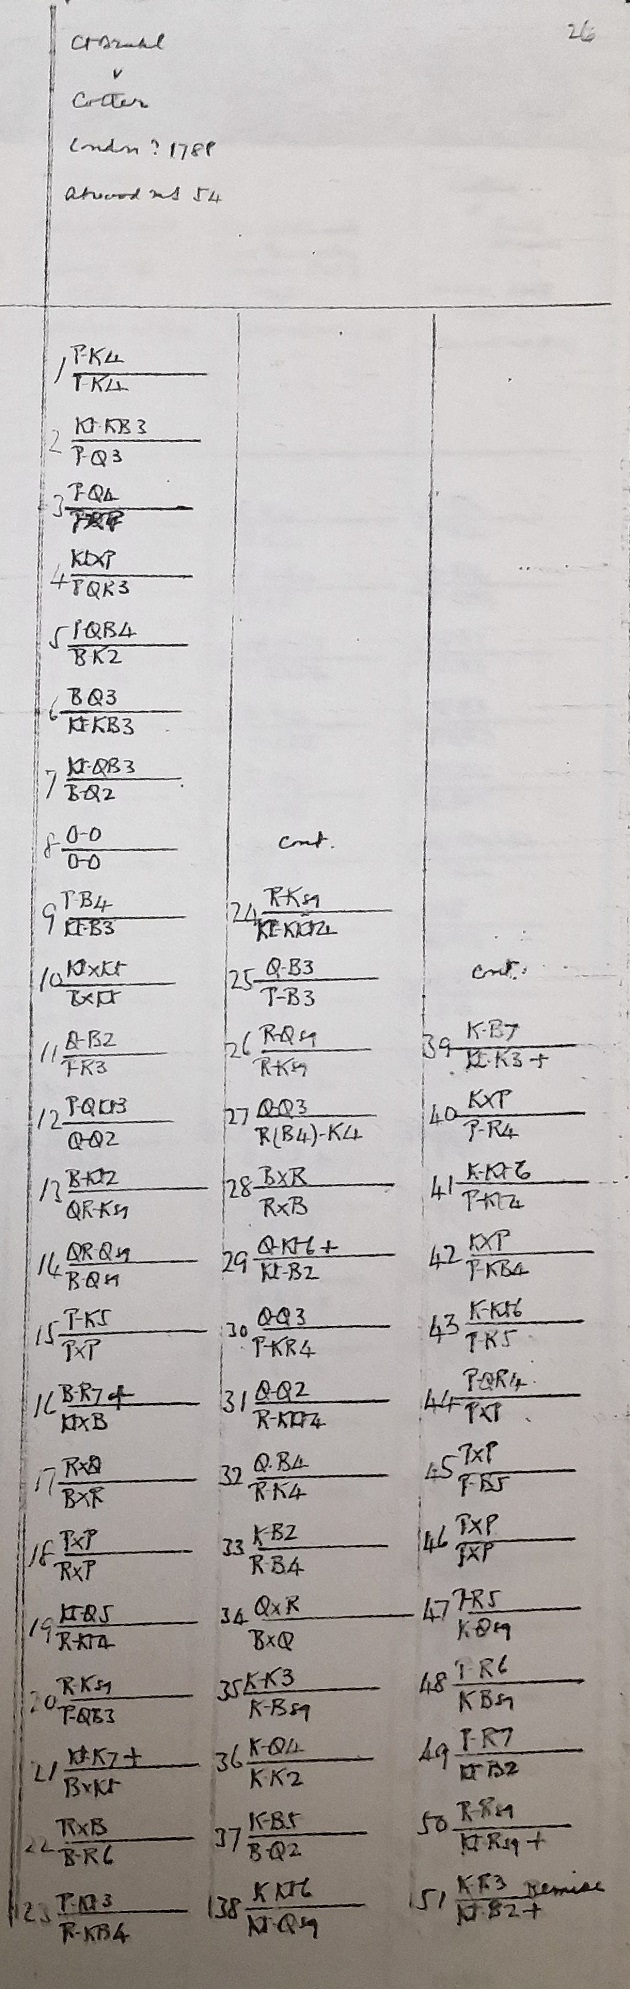 26
v
Cotter
London? 178
Atwood ms 54
1 P-K4
P-K4
2 Kt-KB3
P-Q3
3 P-Q4
PxP
4 KtxP
PQK3
5 PQB4
B-K2
6 B Q3
Kt-KB3
7 Kt-QB3
B-Q2
8 0-0
0-0
9 P-B4
Kt-B3
10 KtxKt
BxKt
11 Q-B2
P-K3
12 P-QKt3
Q-Q2
13 B-Kt2
QR-Ksq
14 QR-Qsq
B-Qsq
15 P-K5
PxP
16 B-R7+
KtxB
17 RxQ
BxR
18 PxP
RxP
19 Kt-Q5
R-Kt4
20 R-Ksq
P-QB3
21 Kt-K7+
BxKt
22 RxB
B-R6
23 P-Kt3
R-KB4
cont.
24 R-Ksq
Kt-KKt4
25 Q-B3
P-B3
26 R-Qsq
R-Ksq
27 Q-Q3
R(B4)-K4
28 BxR
RxB
29 Q-Kt6+
Kt-B2
30 Q-Q3
P-KR4
31 Q-Q2
R-KKt4
32 Q.B4
R-K4
33 K-B2
R-B4
34 QxR
BxQ
35 K-K3
K-Bsq
36 K-Q4
K-K2
37 K-B5
B-Q2
38 K Kt6
Kt-Qsq
cont.
39 K-B7
Kt-K3+
40 KxP
P-R4
41 K-Kt6
P-Kt4
42 KxP
P-KB4
43 K-Kt6
P-K5
44 P-QR4
PxP
45 PxP
P-B5
46 PxP
PxP
47 P-R5
K-Qsq
48 P-R6
K Bsq
49 P-R7
Kt B2
50 P-Rsq
Kt-Rsq+
51 K-R3 Remise
Kt-B2+